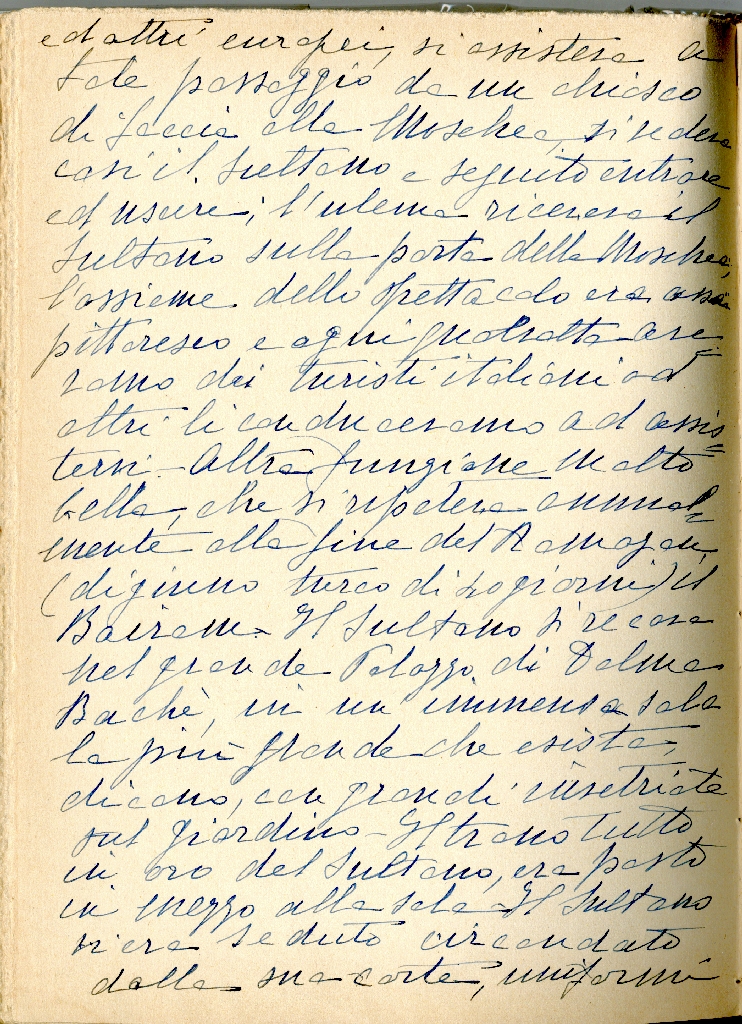 ed altri europei, si assisteva a
tale passaggio da un chiosco
di faccia alla Moschea, si vedeva
così il Sultano e seguito entrare
ed uscire; l'ulema riceveva il
Sultano sulla porta della Moschea,
l'assieme dello spettacolo era assai
pittoresco e ogni qualvolta ave=
vamo dei turisti italiani od
altri li conducevamo ad assis=
tervi - Altra funzione molto
bella, che si ripeteva annual=
mente alla fine del Ramazan
(digiuno turco di 30 giorni) il
Bairam - Il Sultano si recava
nel grande Palazzo di Dolma
Bachè, in un immensa sala
la più grande che esista,
dicono, con grandi vetriate
sul giardino - Il trono tutto
in oro del Sultano, era posto
in mezzo alla sala - Il Sultano
vi era seduto circondato
dalla sua corte, uniformi